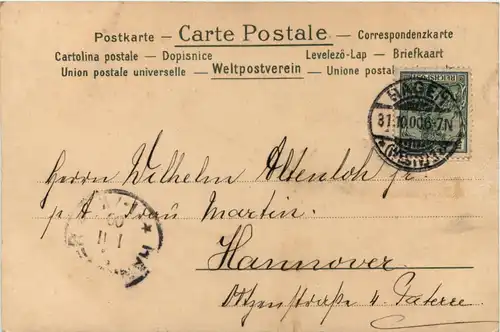 Postkarte – Carte Postale – Correspondenzkarte
Cartolina postale – Dopisnice Levelező-Lap – Briefkaart
Union postale universelle – Weltpostverein – Unione postal
HAGEN
31.10.00.6-7N
(WESTF.)
Herrn Wilhelm Altenloh jr.
p. A. Frau Martin.
Hannover
Otzenstraße 4. Parterre